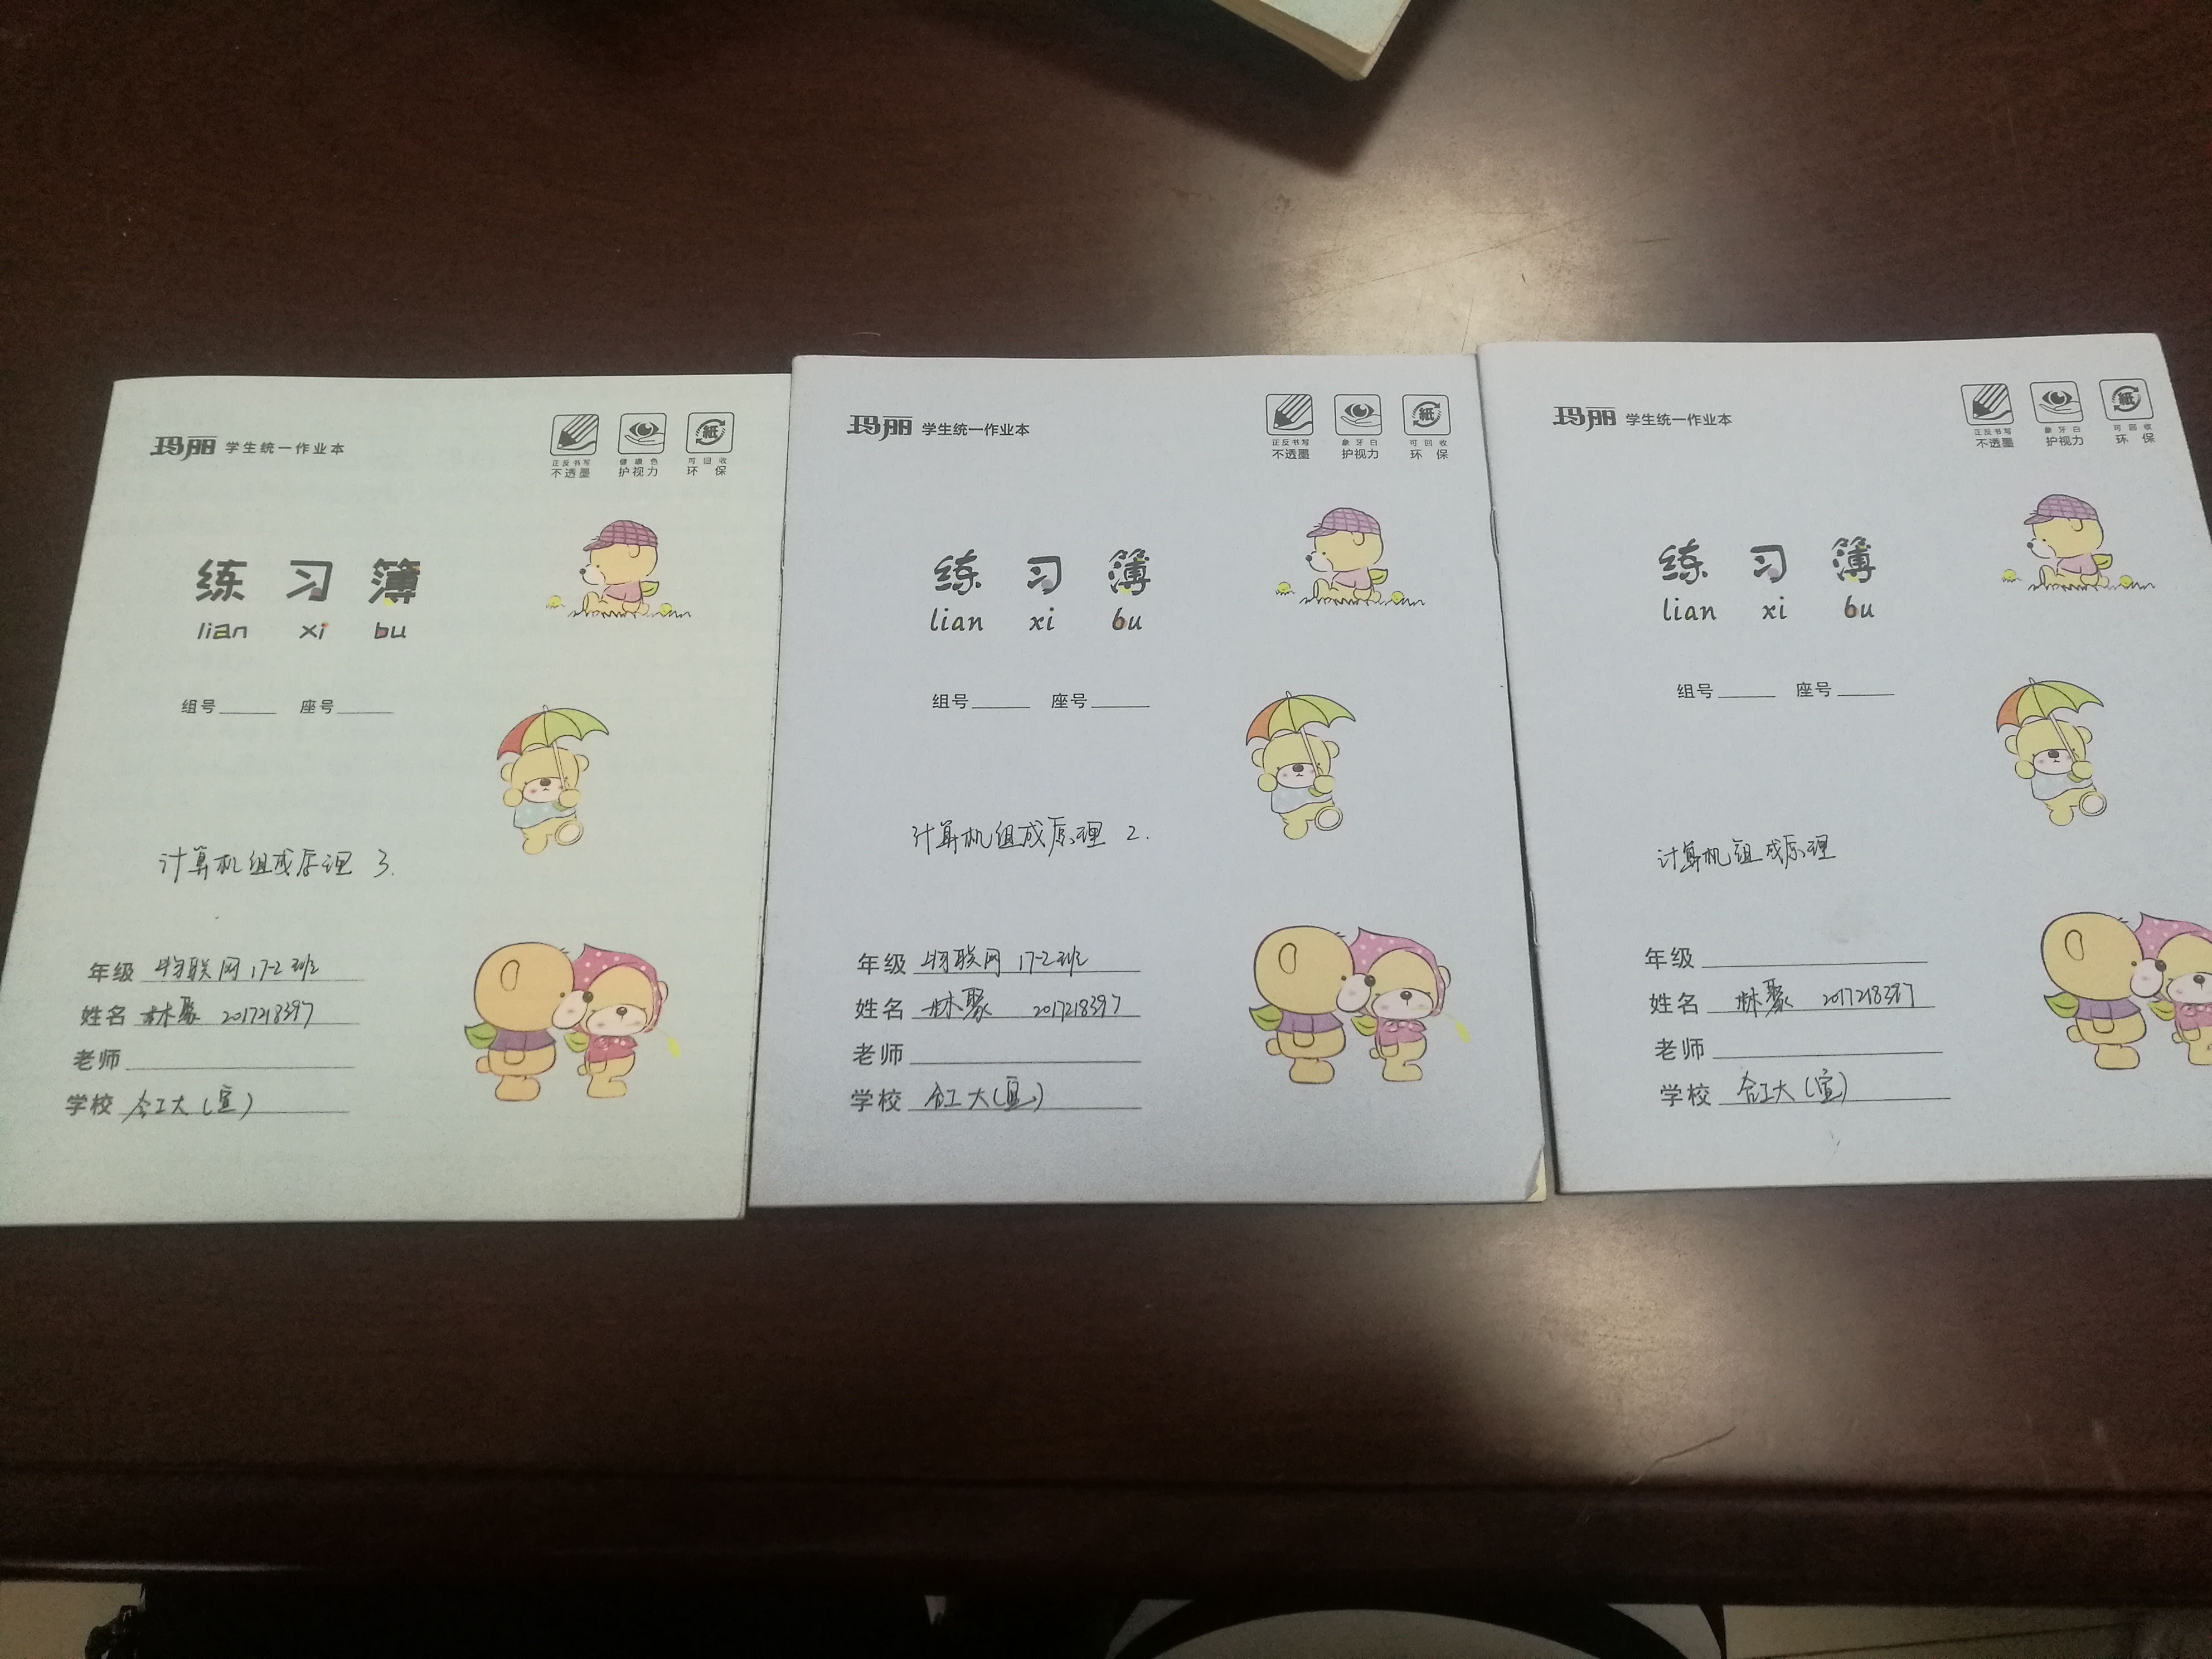 玛丽 学生统一作业本
正反书写 健康色 可回收
不透墨 护视力 环保
练习簿
lian xi bu
组号 座号
计算机组成原理 3.
年级 物联网 17-2班
姓名 林聚 2017218397
老师
学校 合工大(宣)
玛丽 学生统一作业本
正反书写 象牙白 可回收
不透墨 护视力 环保
练习簿
lian xi bu
组号 座号
计算机组成原理 2.
年级 物联网 17-2班
姓名 林聚 2017218397
老师
学校 合工大(宣)
玛丽 学生统一作业本
正反书写 象牙白 可回收
不透墨 护视力 环保
练习簿
lian xi bu
组号 座号
计算机组成原理
年级
姓名 林聚 2017218397
老师
学校 合工大(宣)